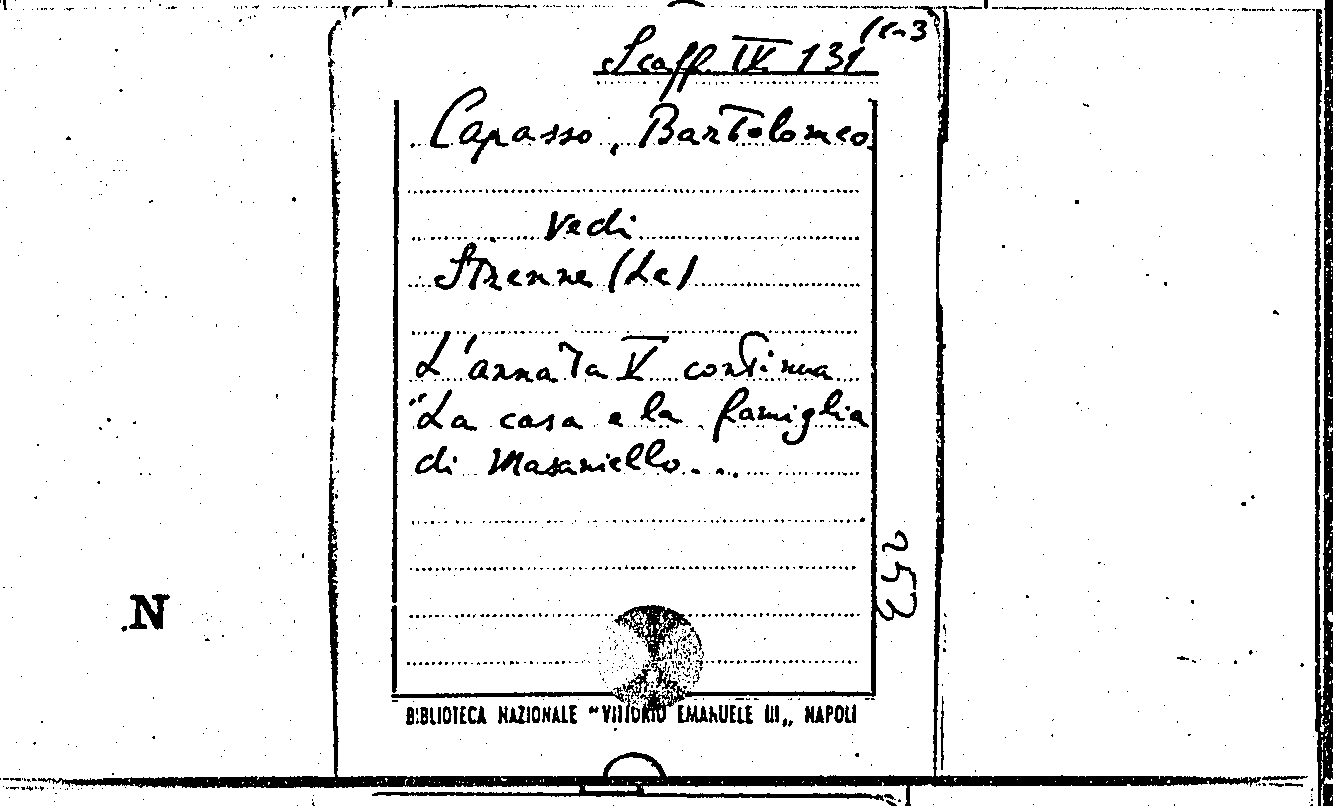 Scaff. IV 131 (1-3
Capasso, Bartolomeo
Vedi
Strenne (Le)
L'annata V continua
"La casa e la famiglia
di Masaniello...
253
N
BIBLIOTECA NAZIONALE "VITTORIO EMANUELE III„ NAPOLI